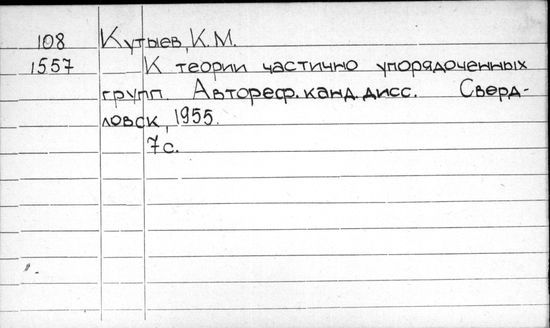 108 Кутыев, К.М.
1557 К теории частично упорядоченных
групп. Автореф. канд. дисс. Сверд-
ловск, 1955.
7с.